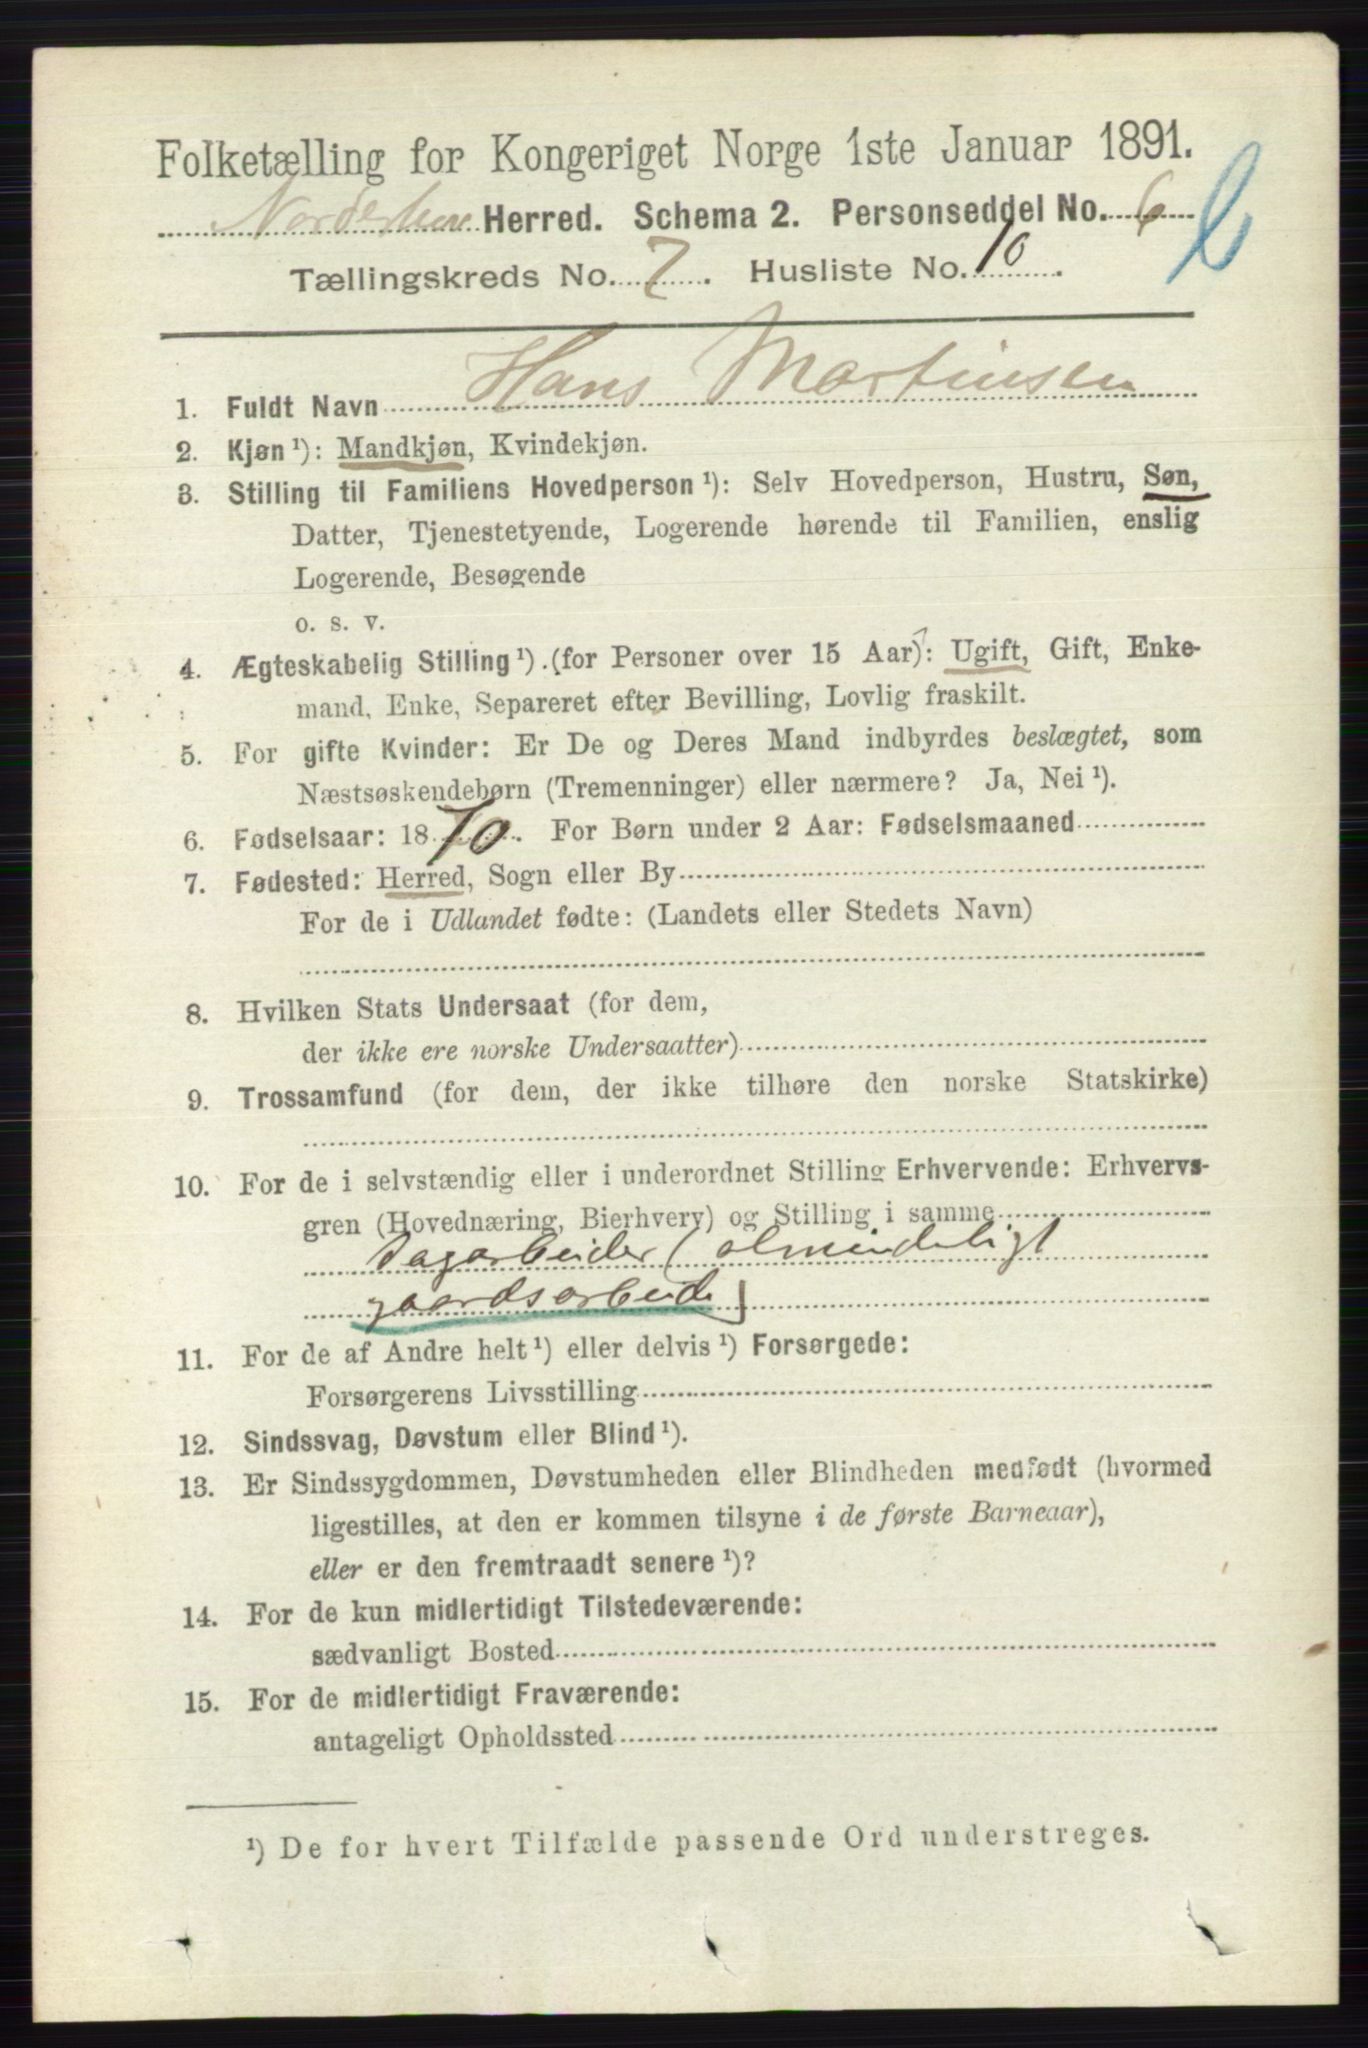 Folketælling for Kongeriget Norge 1ste Januar 1891.
Norderhov Herred. Schema 2. Personseddel No. 6
Tællingskreds No. 7. Husliste No. 10.
1. Fuldt Navn Hans Martinsen
2. Kjøn ¹): Mandkjøn, Kvindekjøn.
3. Stilling til Familiens Hovedperson ¹): Selv Hovedperson, Hustru, Søn,
Datter, Tjenestetyende, Logerende hørende til Familien, enslig
Logerende, Besøgende
o. s. v.
4. Ægteskabelig Stilling ¹). (for Personer over 15 Aar): Ugift, Gift, Enke-
mand, Enke, Separeret efter Bevilling, Lovlig fraskilt.
5. For gifte Kvinder: Er De og Deres Mand indbyrdes beslægtet, som
Næstsøskendebørn (Tremenninger) eller nærmere? Ja, Nei ¹).
6. Fødselsaar: 1870. For Børn under 2 Aar: Fødselsmaaned
7. Fødested: Herred, Sogn eller By
For de i Udlandet fødte: (Landets eller Stedets Navn)
8. Hvilken Stats Undersaat (for dem,
der ikke ere norske Undersaatter)
9. Trossamfund (for dem, der ikke tilhøre den norske Statskirke)
10. For de i selvstændig eller i underordnet Stilling Erhvervende: Erhvervs-
gren (Hovednæring, Bierhverv) og Stilling i samme
Dagarbeider (almindeligt
gaardsarbeide)
11. For de af Andre helt ¹) eller delvis ¹) Forsørgede:
Forsørgerens Livsstilling
12. Sindssvag, Døvstum eller Blind ¹).
13. Er Sindssygdommen, Døvstumheden eller Blindheden medfødt (hvormed
ligestilles, at den er kommen tilsyne i de første Barneaar),
eller er den fremtraadt senere ¹)?
14. For de kun midlertidigt Tilstedeværende:
sædvanligt Bosted
15. For de midlertidigt Fraværende:
antageligt Opholdssted
¹) De for hvert Tilfælde passende Ord understreges.